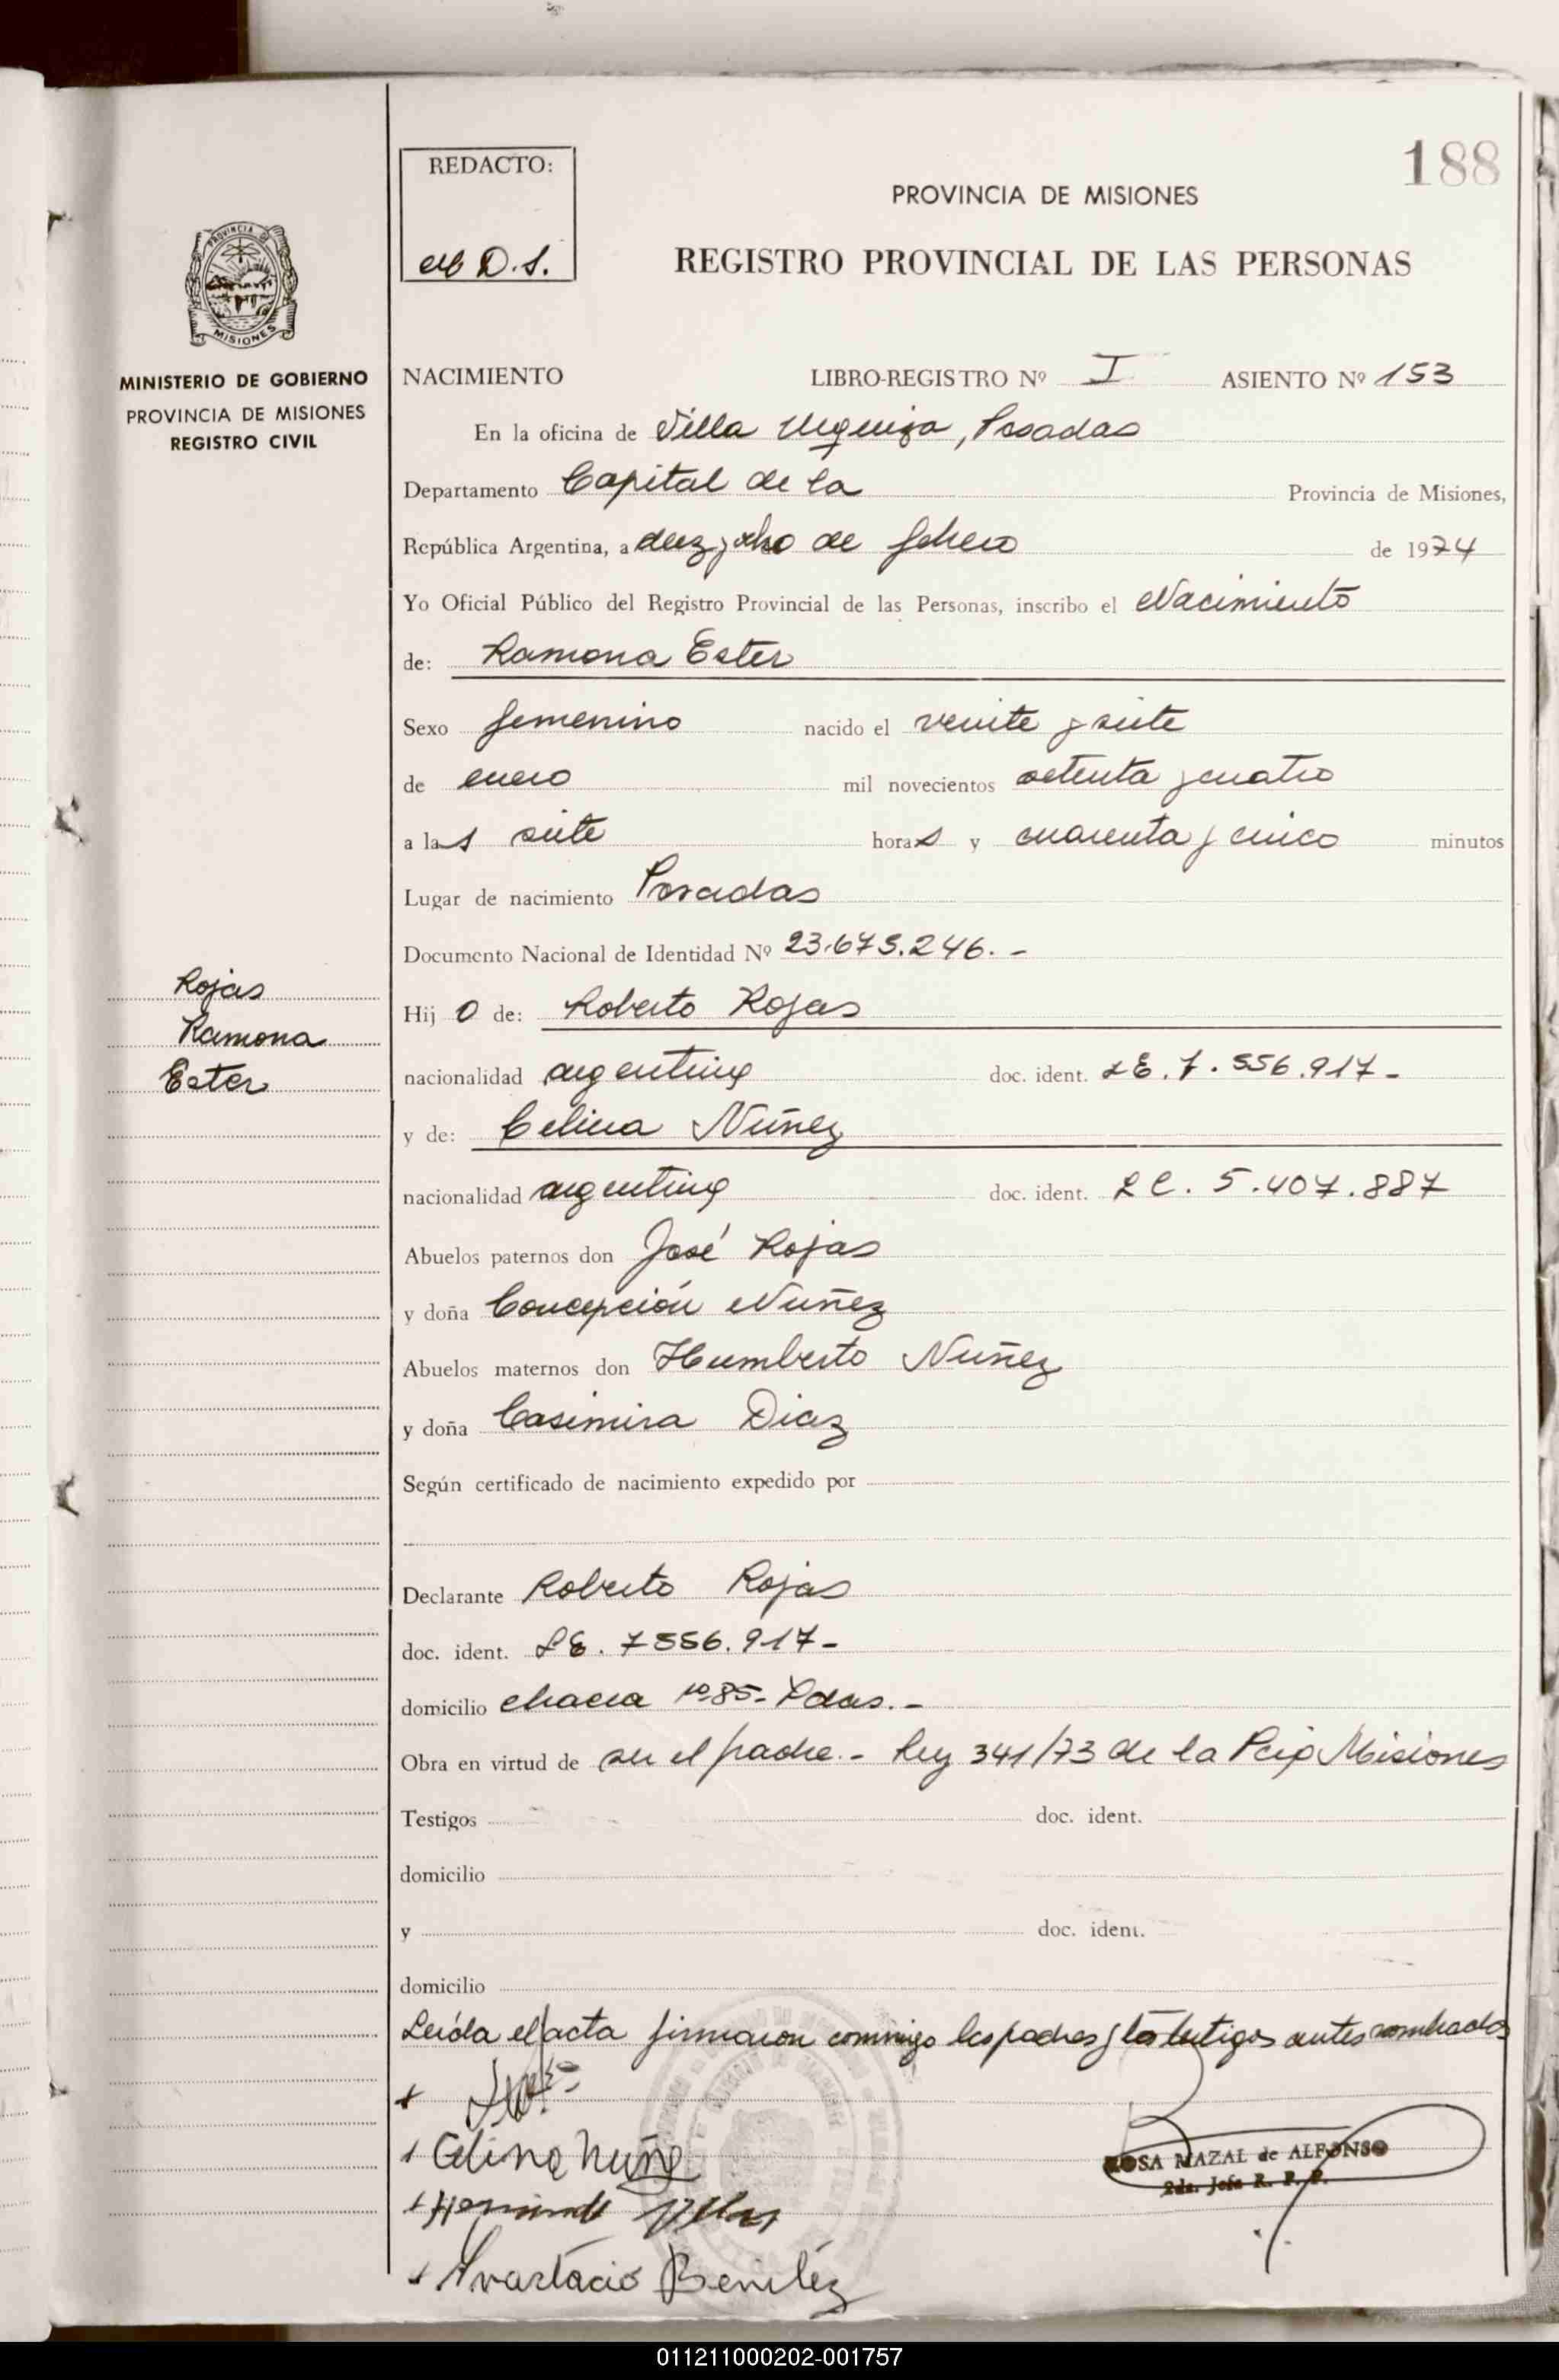 188
REDACTO:
D. S.
PROVINCIA DE MISIONES
REGISTRO PROVINCIAL DE LAS PERSONAS
PROVINCIA DE
MISIONES
MINISTERIO DE GOBIERNO
PROVINCIA DE MISIONES
REGISTRO CIVIL
NACIMIENTO LIBRO-REGISTRO Nº I ASIENTO Nº 153
En la oficina de Villa Urquiza, Posadas
Departamento Capital de la Provincia de Misiones,
República Argentina, a diez y ocho de febrero de 1974
Yo Oficial Público del Registro Provincial de las Personas, inscribo el Nacimiento
de: Ramona Ester
Sexo femenino nacido el veinte y siete
de enero mil novecientos setenta y cuatro
a las siete horas y cuarenta y cinco minutos
Lugar de nacimiento Posadas
Documento Nacional de Identidad Nº 23.675.246.-
Rojas
Ramona
Ester
Hij o de: Roberto Rojas
nacionalidad argentina doc. ident. LE. 7.556.917-
y de: Celina Nuñez
nacionalidad argentina doc. ident. LC. 5.407.887
Abuelos paternos don José Rojas
y doña Concepción Nuñez
Abuelos maternos don Humberto Nuñez
y doña Casimira Diaz
Según certificado de nacimiento expedido por
Declarante Roberto Rojas
doc. ident. LE. 7556.917-
domicilio chacra nº 85- Pdas.-
Obra en virtud de ser el padre.- Ley 341/73 de la Pcia Misiones
Testigos doc. ident.
domicilio
y doc. ident.
domicilio
Leída el acta firmaron conmigo los padres y los testigos antes nombrados
Celina Nuñe
ROSA MAZAL de ALFONSO
2da. Jefa R. P. P.
Anastacio Benitez
011211000202-001757